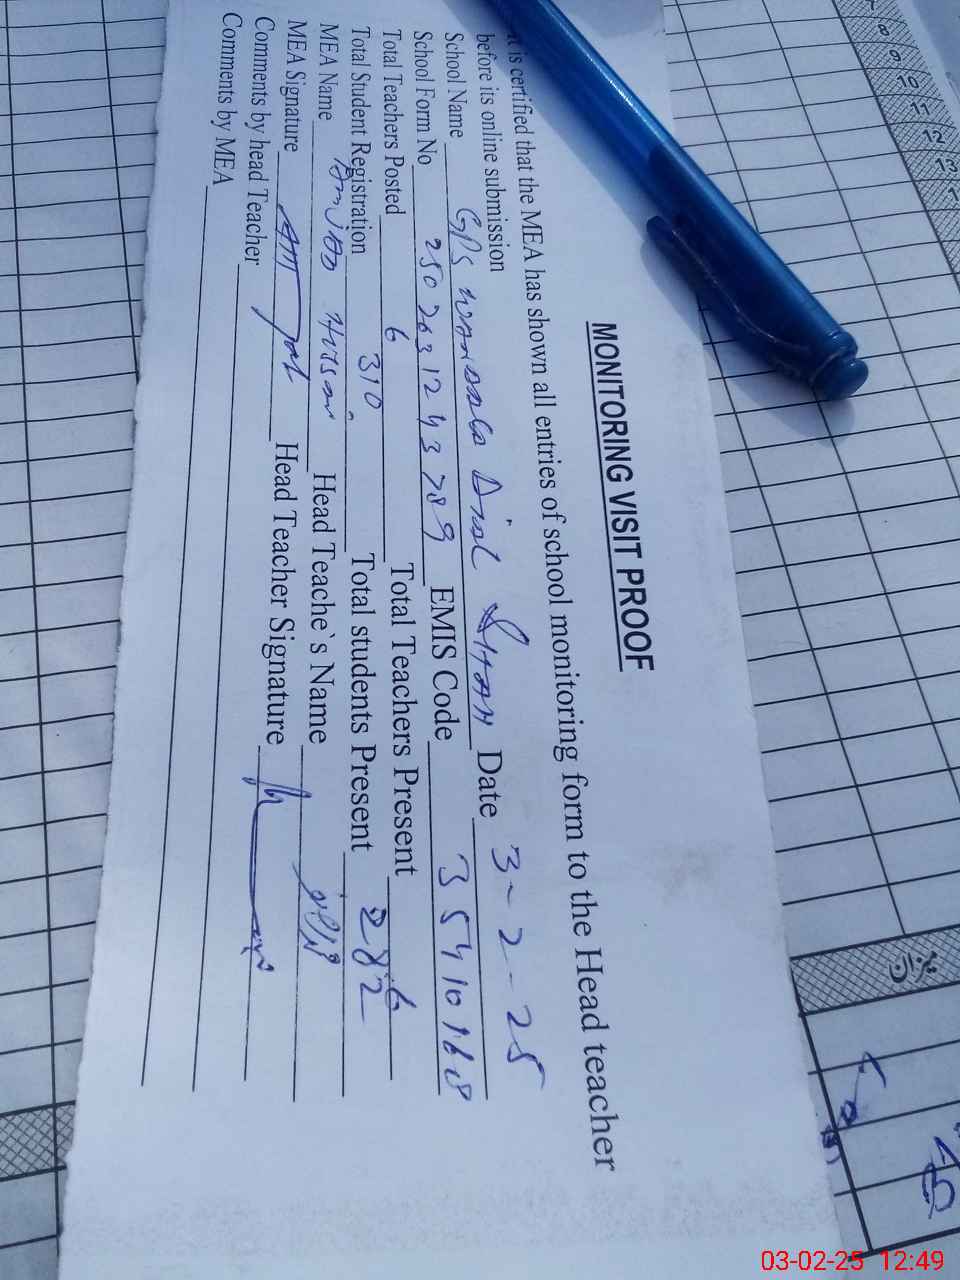 MONITORING VISIT PROOF
It is certified that the MEA has shown all entries of school monitoring form to the Head teacher
before its online submission
School Name GPS Dist Date 3-2-25
School Form No 2502031243789 EMIS Code 35410168
Total Teachers Posted 6 Total Teachers Present 6
Total Student Registration 310 Total students Present 282
MEA Name Amjad Head Teache`s Name
MEA Signature Head Teacher Signature
Comments by head Teacher
Comments by MEA
7
8
9
10
11
12
13
میزان
03-02-25 12:49